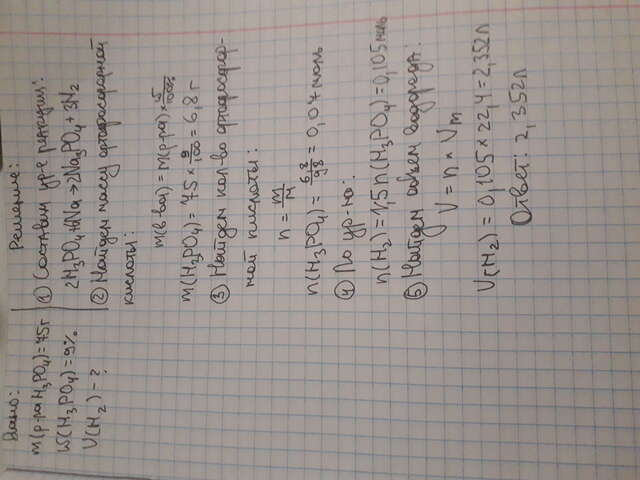 Дано:
m(р-ра H₃PO₄)=75г
ω(H₃PO₄)=9%
V(H₂)-?
Решение:
① Составим ур-е реакции:
2H₃PO₄+6Na→2Na₃PO₄+3H₂
② Найдем массу ортофосфорной
кислоты:
m(в-ва)=m(р-ра)×ω/100%
m(H₃PO₄)=75×9/100=6,8г
③ Найдем кол-во ортофосфор-
ной кислоты:
n=m/M
n(H₃PO₄)=6,8/98=0,07моль
④ По ур-ю:
n(H₂)=1,5n(H₃PO₄)=0,105моль
⑤ Найдем объем водорода:
V=n×Vm
V(H₂)=0,105×22,4=2,352л
Ответ: 2,352л